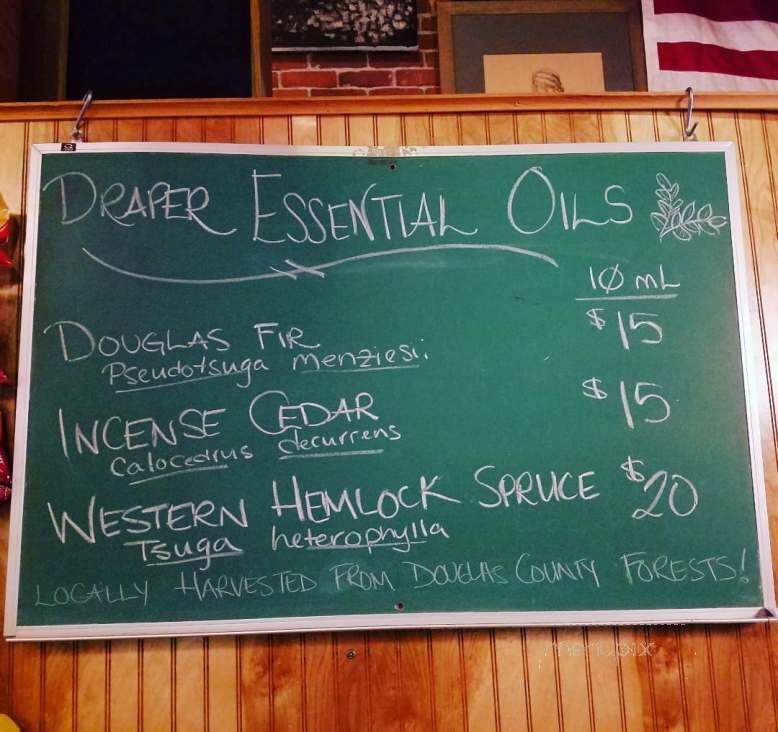 DRAPER ESSENTIAL OILS
10 mL
DOUGLAS FIR $15
Pseudotsuga menziesii
INCENSE CEDAR $15
Calocedrus decurrens
WESTERN HEMLOCK SPRUCE $20
Tsuga heterophylla
LOCALLY HARVESTED FROM DOUGLAS COUNTY FORESTS!
menupix